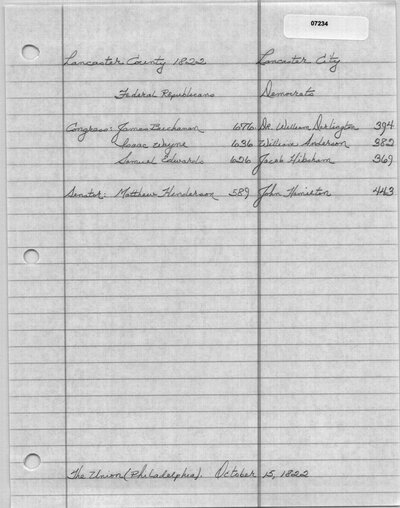 07234
Lancaster County 1822 Lancaster City
Federal Republicans Democrats
Congress: James Buchanan 676 Dr. William Darlington 394
Isaac Wayne 636 William Anderson 382
Samuel Edwards 626 Jacob Hibshman 369
Senator: Matthew Henderson 589 John Hamilton 443
The Union (Philadelphia). October 15, 1822